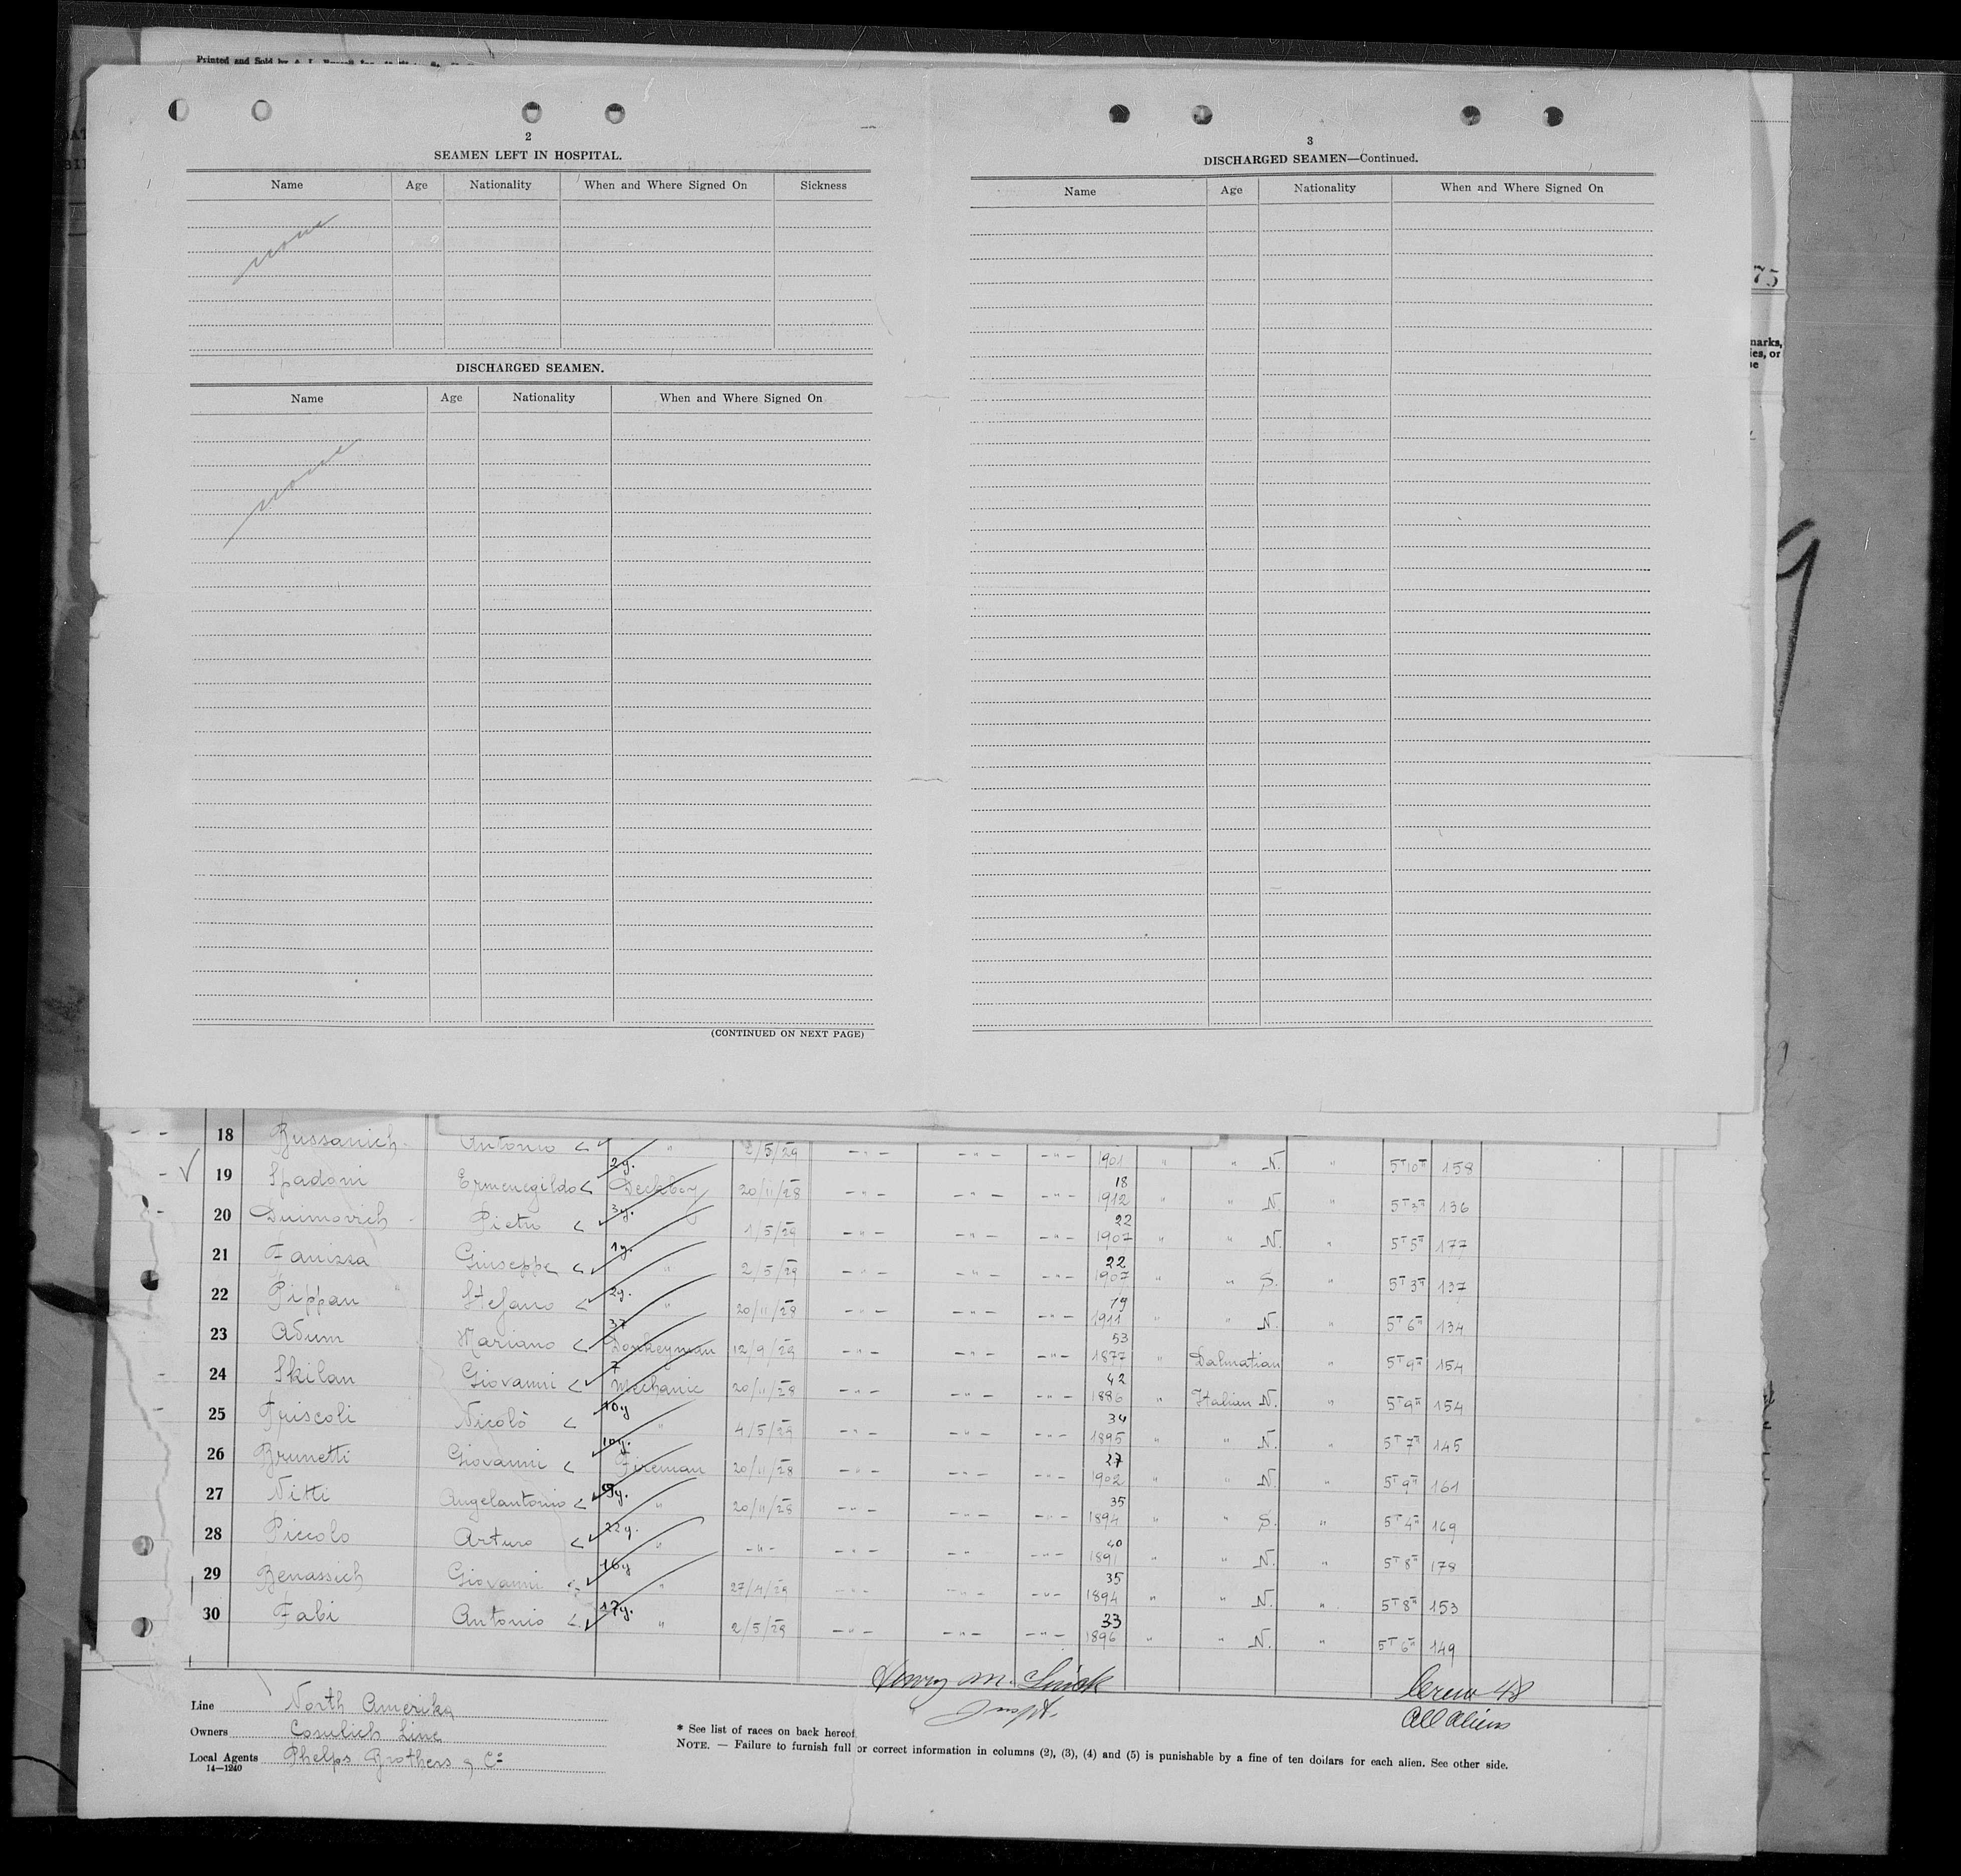 Printed and Sold by
2
SEAMEN LEFT IN HOSPITAL.
Name Age Nationality When and Where Signed On Sickness
none
DISCHARGED SEAMEN.
Name Age Nationality When and Where Signed On
none
(CONTINUED ON NEXT PAGE)
3
DISCHARGED SEAMEN—Continued.
Name Age Nationality When and Where Signed On
75
marks,
ies, or
18 Bussanich Antonio " 2/5/29 -"- -"- -"- 1901 " " N. " 5'10" 158
19 Spadoni Ermenegildo 2y. Deckboy 20/11/28 -"- -"- -"- 18 1912 " " N. " 5'3" 136
20 Duimovich Pietro 3y. " 1/5/29 -"- -"- -"- 22 1907 " " N. " 5'5" 177
21 Fanizza Giuseppe 1y. " 2/5/29 -"- -"- -"- 22 1907 " " S. " 5'3" 137
22 Pippan Stefano 2y. " 20/11/28 -"- -"- -"- 19 1911 " " N. " 5'6" 134
23 Adum Mariano 37 Donkeyman 12/9/29 -"- -"- -"- 53 1877 " Dalmatian " 5'9" 154
24 Skilan Giovanni 7 Mechanic 20/11/28 -"- -"- -"- 42 1886 " Italian N. " 5'9" 154
25 Friscoli Nicolò 10y " 4/5/29 -"- -"- -"- 34 1895 " " N. " 5'7" 145
26 Brunetti Giovanni 10y. Fireman 20/11/28 -"- -"- -"- 27 1902 " " N. " 5'9" 161
27 Nitti Angelantonio 9y. " 20/11/28 -"- -"- -"- 35 1894 " " S. " 5'4" 169
28 Piccolo Arturo 22y. " -"- -"- -"- -"- 40 1891 " " N. " 5'8" 178
29 Benassich Giovanni 16y " 27/4/29 -"- -"- -"- 35 1894 " " N. " 5'8" 153
30 Fabi Antonio 17y. " 2/5/29 -"- -"- -"- 33 1896 " " N. " 5'6" 149
Henry M.
Inspt.
Crew 48
All Aliens
Line North Amerika
Owners Cosulich Line
Local Agents Phelps Brothers & Cº
14—1240
* See list of races on back hereof.
NOTE. — Failure to furnish full or correct information in columns (2), (3), (4) and (5) is punishable by a fine of ten dollars for each alien. See other side.